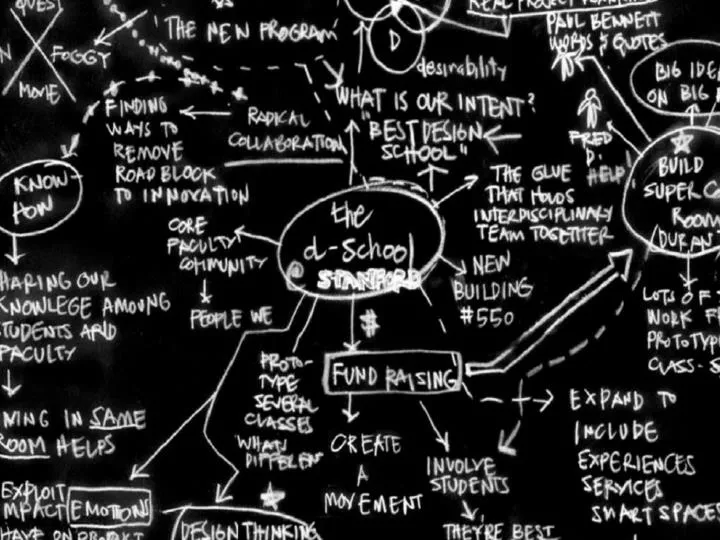 QVES
FOGGY
MOVIE
THE NEW PROGRAM
D
desirability
REAL PROJECT
PAUL BENNETT
WORDS & QUOTES
BIG IDEA
ON BIG
FINDING
WAYS TO
REMOVE
ROAD BLOCK
TO INNOVATION
RADICAL
COLLABORATION
WHAT IS OUR INTENT?
"BEST DESIGN
SCHOOL"
FRED
D.
HELP!
BUILD
SUPER
ROOM
DURAN
KNOW-
HOW
THE GLUE
THAT HOLDS
INTERDISCIPLINARY
TEAM TOGETHER
the
d-School
STANFORD
CORE
FACULTY
COMMUNITY
PEOPLE WE
NEW
BUILDING
#550
HARING OUR
KNOWLEGE AMOUNG
STUDENTS AND
FACULTY
LOTS OF
WORK F
PROTOTYP
CLASS-S
$
PROTO-
TYPE
SEVERAL
CLASSES
WHATS
DIFFEREN
FUND RAISING
CREATE
A
MOVEMENT
INVOLVE
STUDENTS
THEY'RE BEST
EXPAND TO
INCLUDE
EXPERIENCES
SERVICES
SMART SPACES
VING IN SAME
ROOM HELPS
EXPLOIT
IMPACT EMOTIONS
HAVE ON PROJECT
DESIGN THINKING